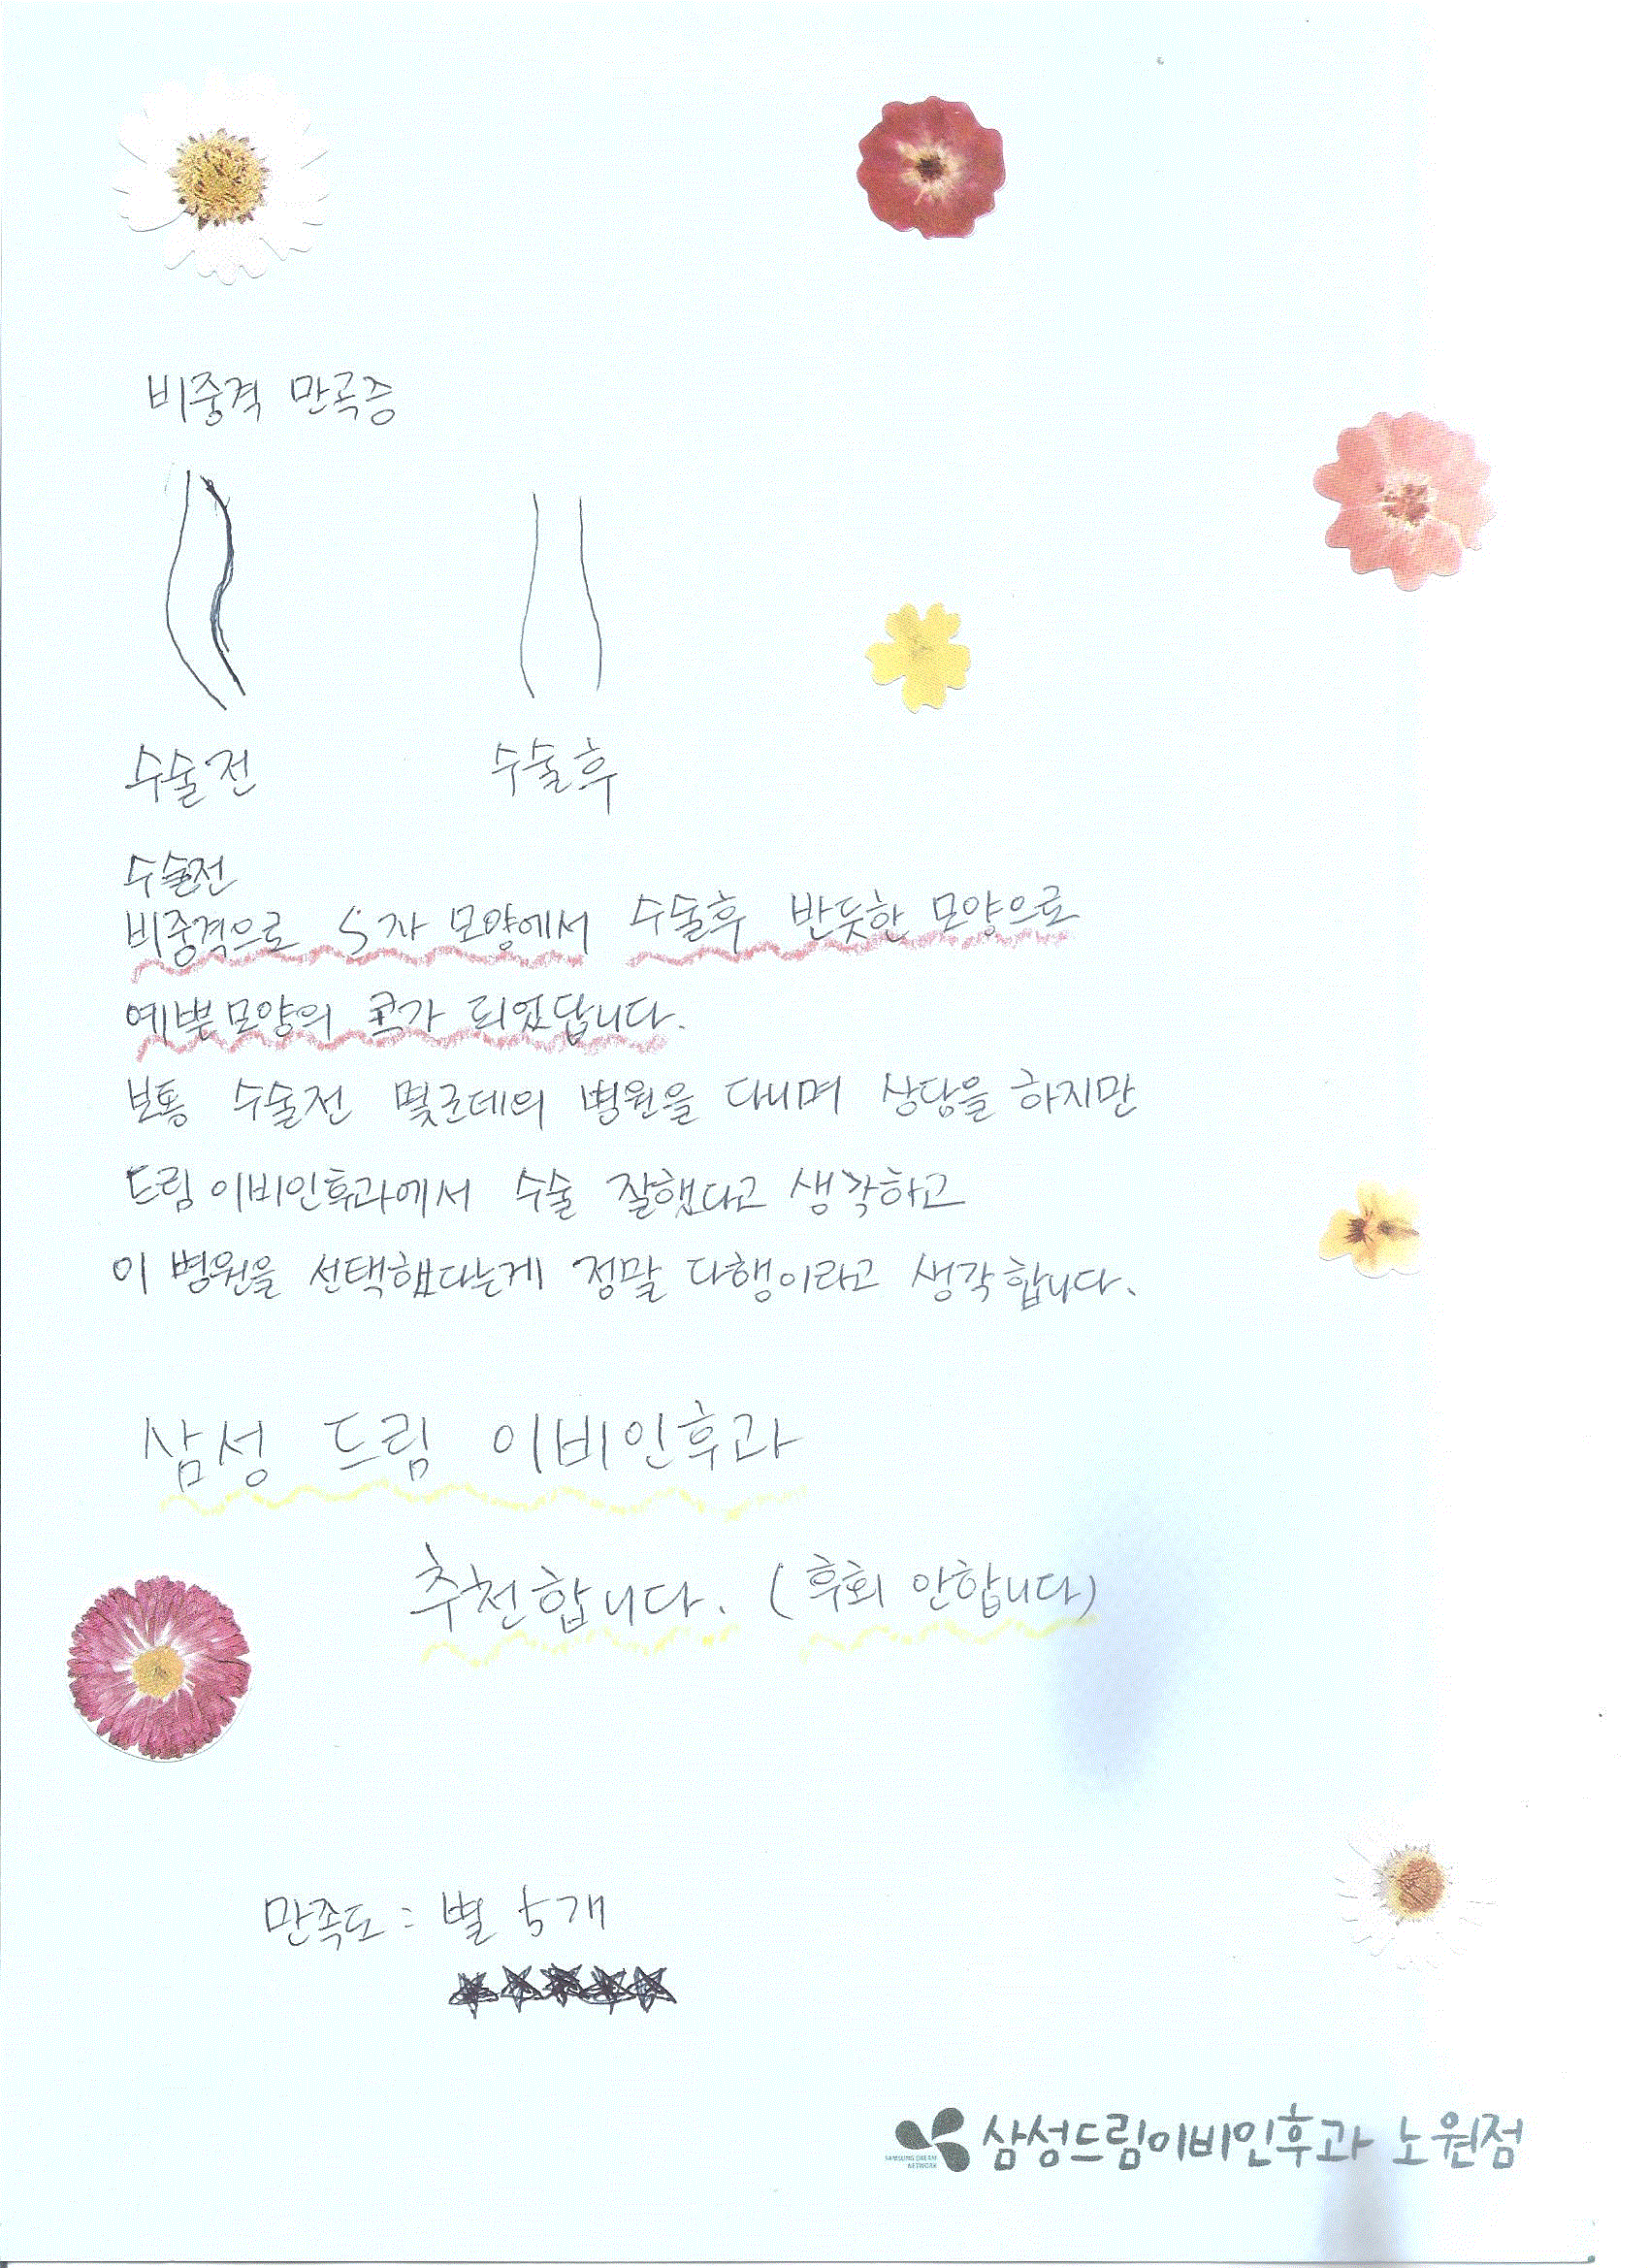 비중격 만곡증
수술전 수술후
수술전
비중격으로 S자 모양에서 수술후 반듯한 모양으로
예쁜모양의 코가 되었답니다.
보통 수술전 몇군데의 병원을 다니며 상담을 하지만
드림이비인후과에서 수술 잘했다고 생각하고
이 병원을 선택했다는게 정말 다행이라고 생각합니다.
삼성 드림 이비인후과
추천합니다. (후회 안합니다)
만족도 : 별 5개
★★★★★
삼성드림이비인후과 노원점
SAMSUNG DREAM
NETWORK